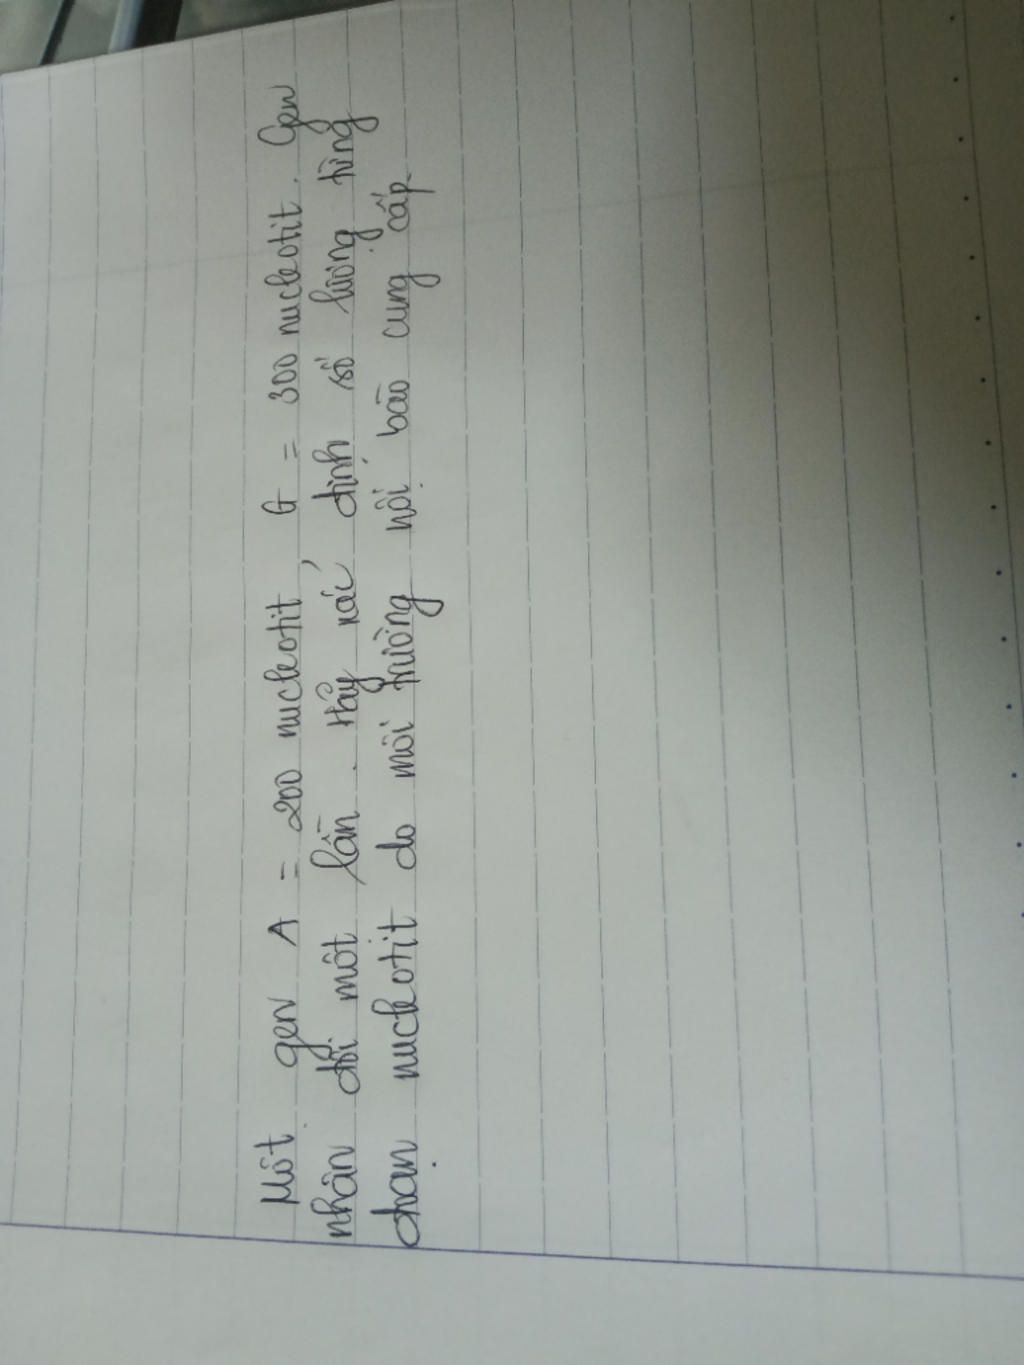 Một gen A = 200 nucleotit, G = 300 nucleotit. Gen
nhân đôi một lần. Hãy xác định số lượng từng
đoạn nucleotit do môi trường nội bào cung cấp.